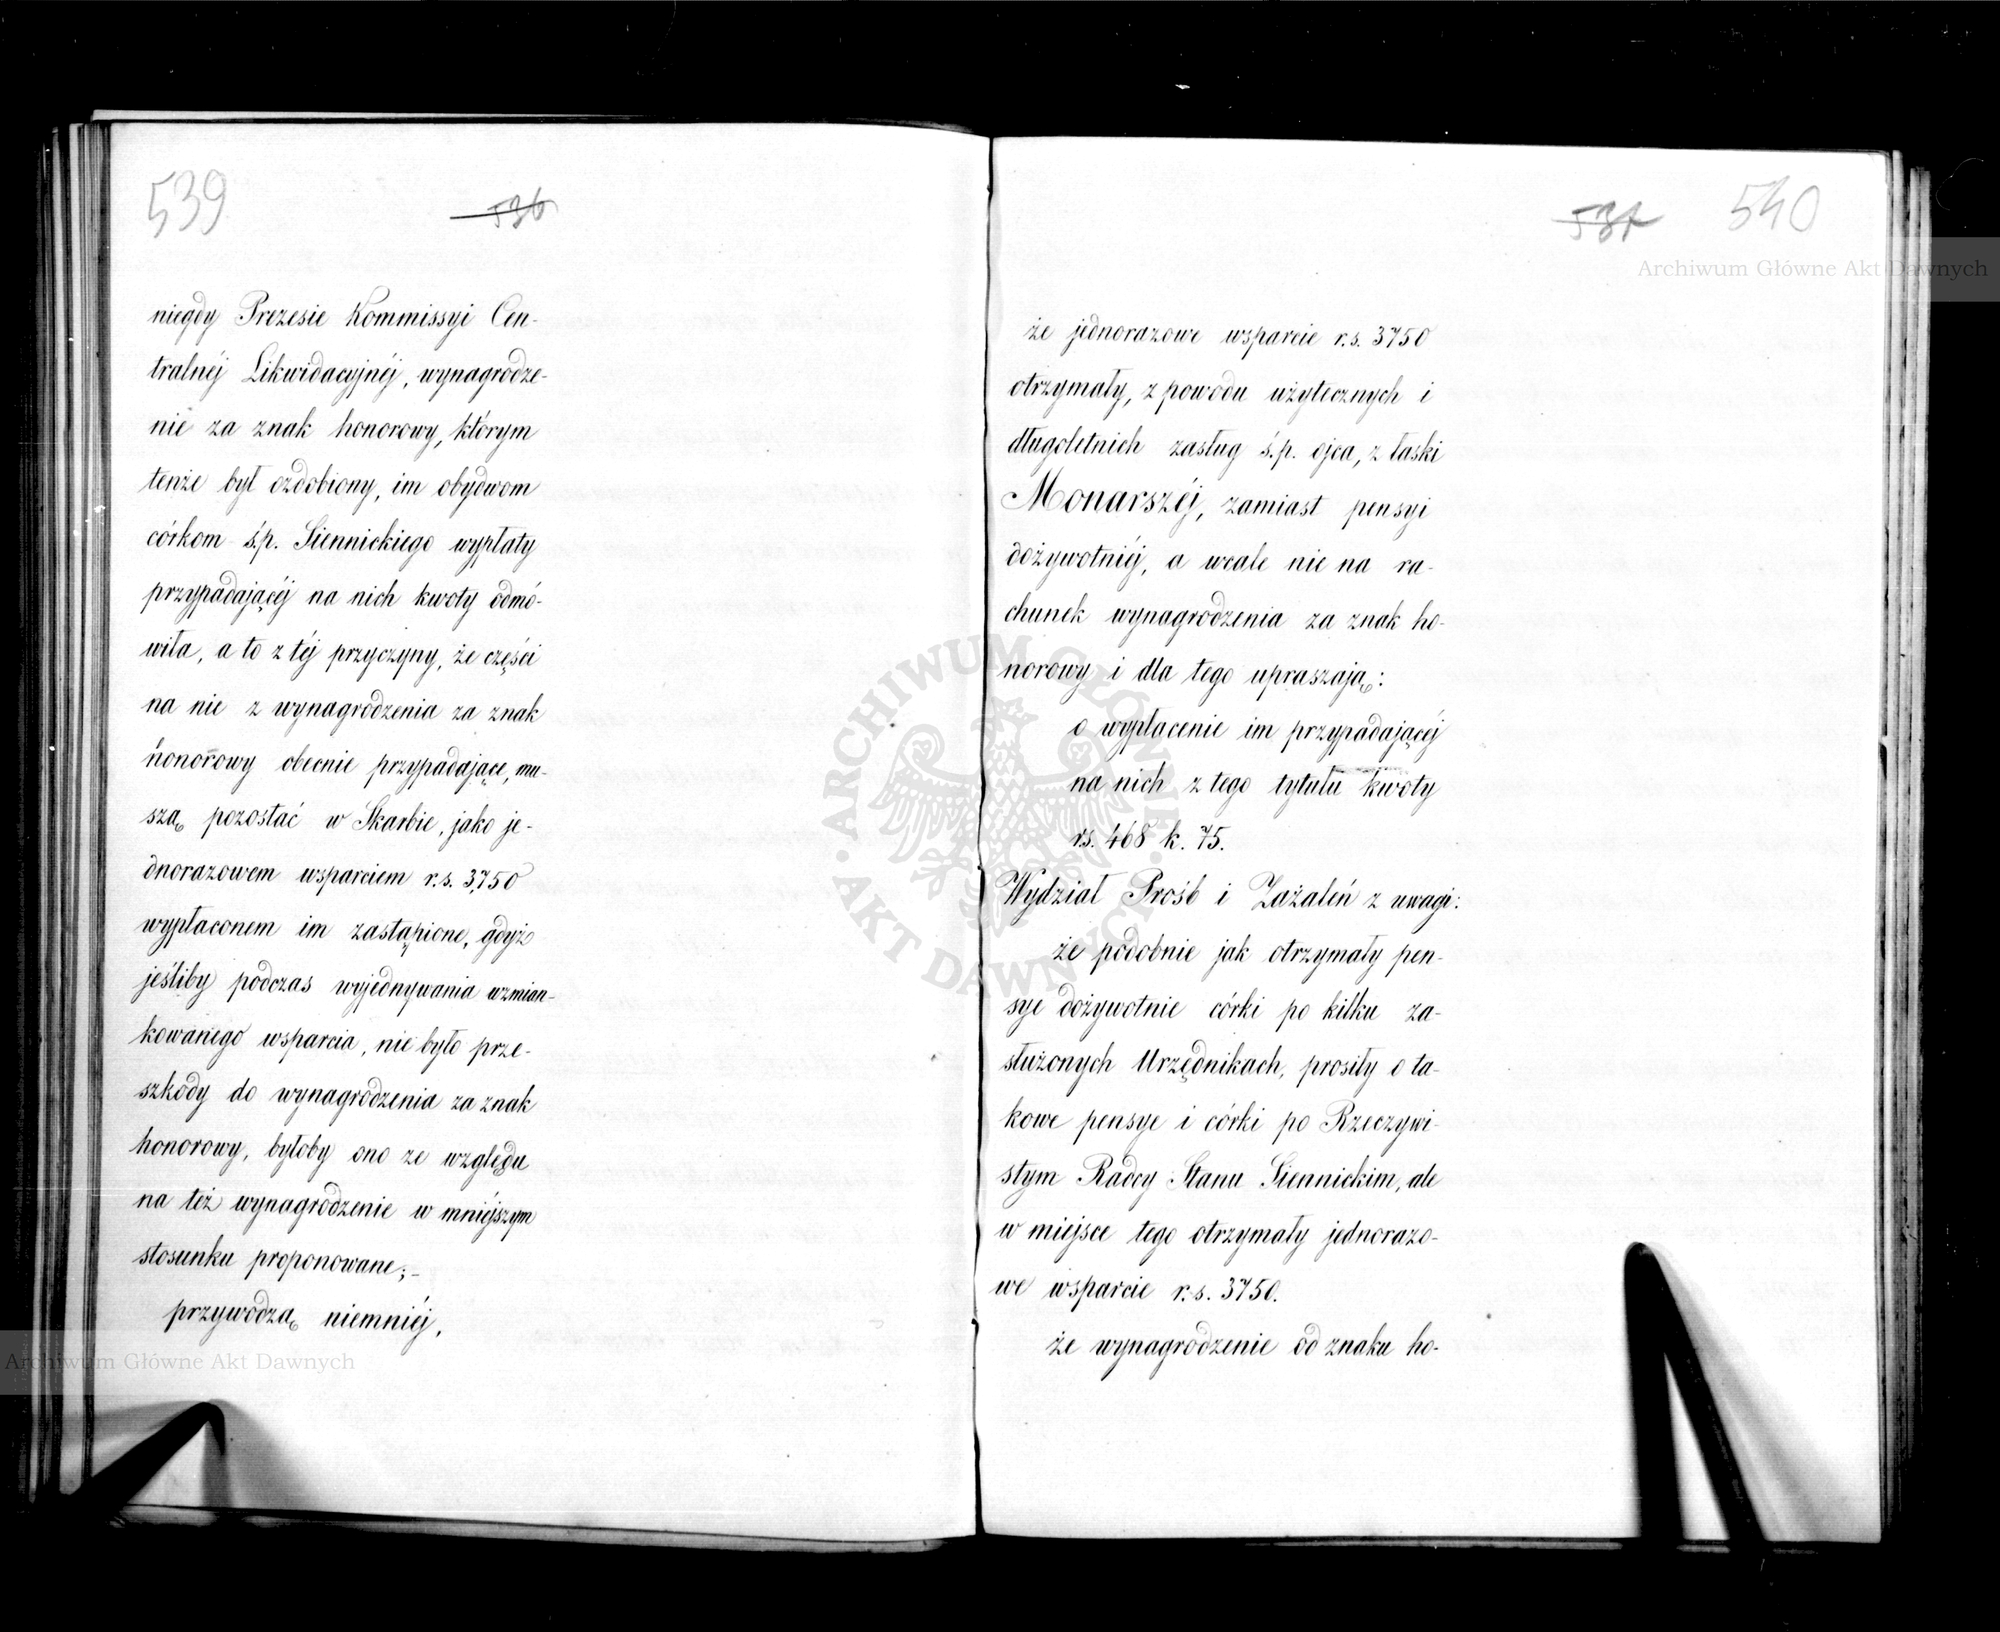 539
536
niegdy Prezesie Kommissyi Cen-
tralnéj Likwidacyjnéj, wynagrodze-
nie za znak honorowy, którym
tenże był ozdobiony, im obydwom
córkom ś.p. Siennickiego wypłaty
przypadającéj na nich kwoty odmó-
wiła, a to z téj przyczyny, że części
na nie z wynagrodzenia za znak
honorowy obecnie przypadające, mu-
szą pozostać w Skarbie, jako je-
dnorazowem wsparciem r.s. 3,750
wypłaconem im zastąpione, gdyż
jeśliby podczas wyjednywania wzmian-
kowanego wsparcia, nie było prze-
szkody do wynagrodzenia za znak
honorowy, byłoby ono ze względu
na też wynagrodzenie w mniéjszym
stosunku proponowane;-
przywodzą niemniéj,
Archiwum Główne Akt Dawnych
537 540
Archiwum Główne Akt Dawnych
że jednorazowe wsparcie r.s. 3750
otrzymały, z powodu użytecznych i
długoletnich zasług ś.p. ojca, z łaski
Monarszéj, zamiast pensyi
dożywotniéj, a wcale nie na ra-
chunek wynagrodzenia za znak ho-
norowy i dla tego upraszają:
o wypłacenie im przypadającéj
na nich z tego tytułu kwoty
rs. 468 k. 75.
Wydział Prośb i Zażaleń z uwagi:
że podobnie jak otrzymały pen-
sye dożywotnie córki po kilku za-
służonych Urzędnikach, prosiły o ta-
kowe pensye i córki po Rzeczywi-
stym Radcy Stanu Siennickim, ale
w miejsce tego otrzymały jednorazo-
we wsparcie r.s. 3750.
że wynagrodzenie od znaku ho-
ARCHIWUM GŁÓWNE AKT DAWNYCH